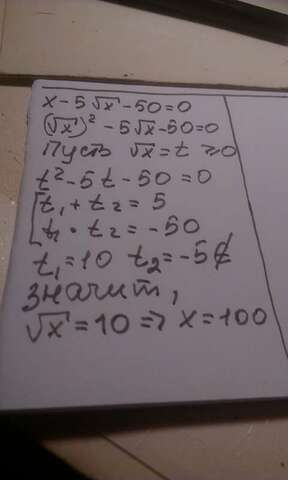 x - 5√x - 50 = 0
(√x)² - 5√x - 50 = 0
Пусть √x = t ≥ 0
t² - 5t - 50 = 0
[t₁ + t₂ = 5
t₁ · t₂ = -50
t₁ = 10 t₂ = -5 ∉
значит,
√x = 10 => x = 100